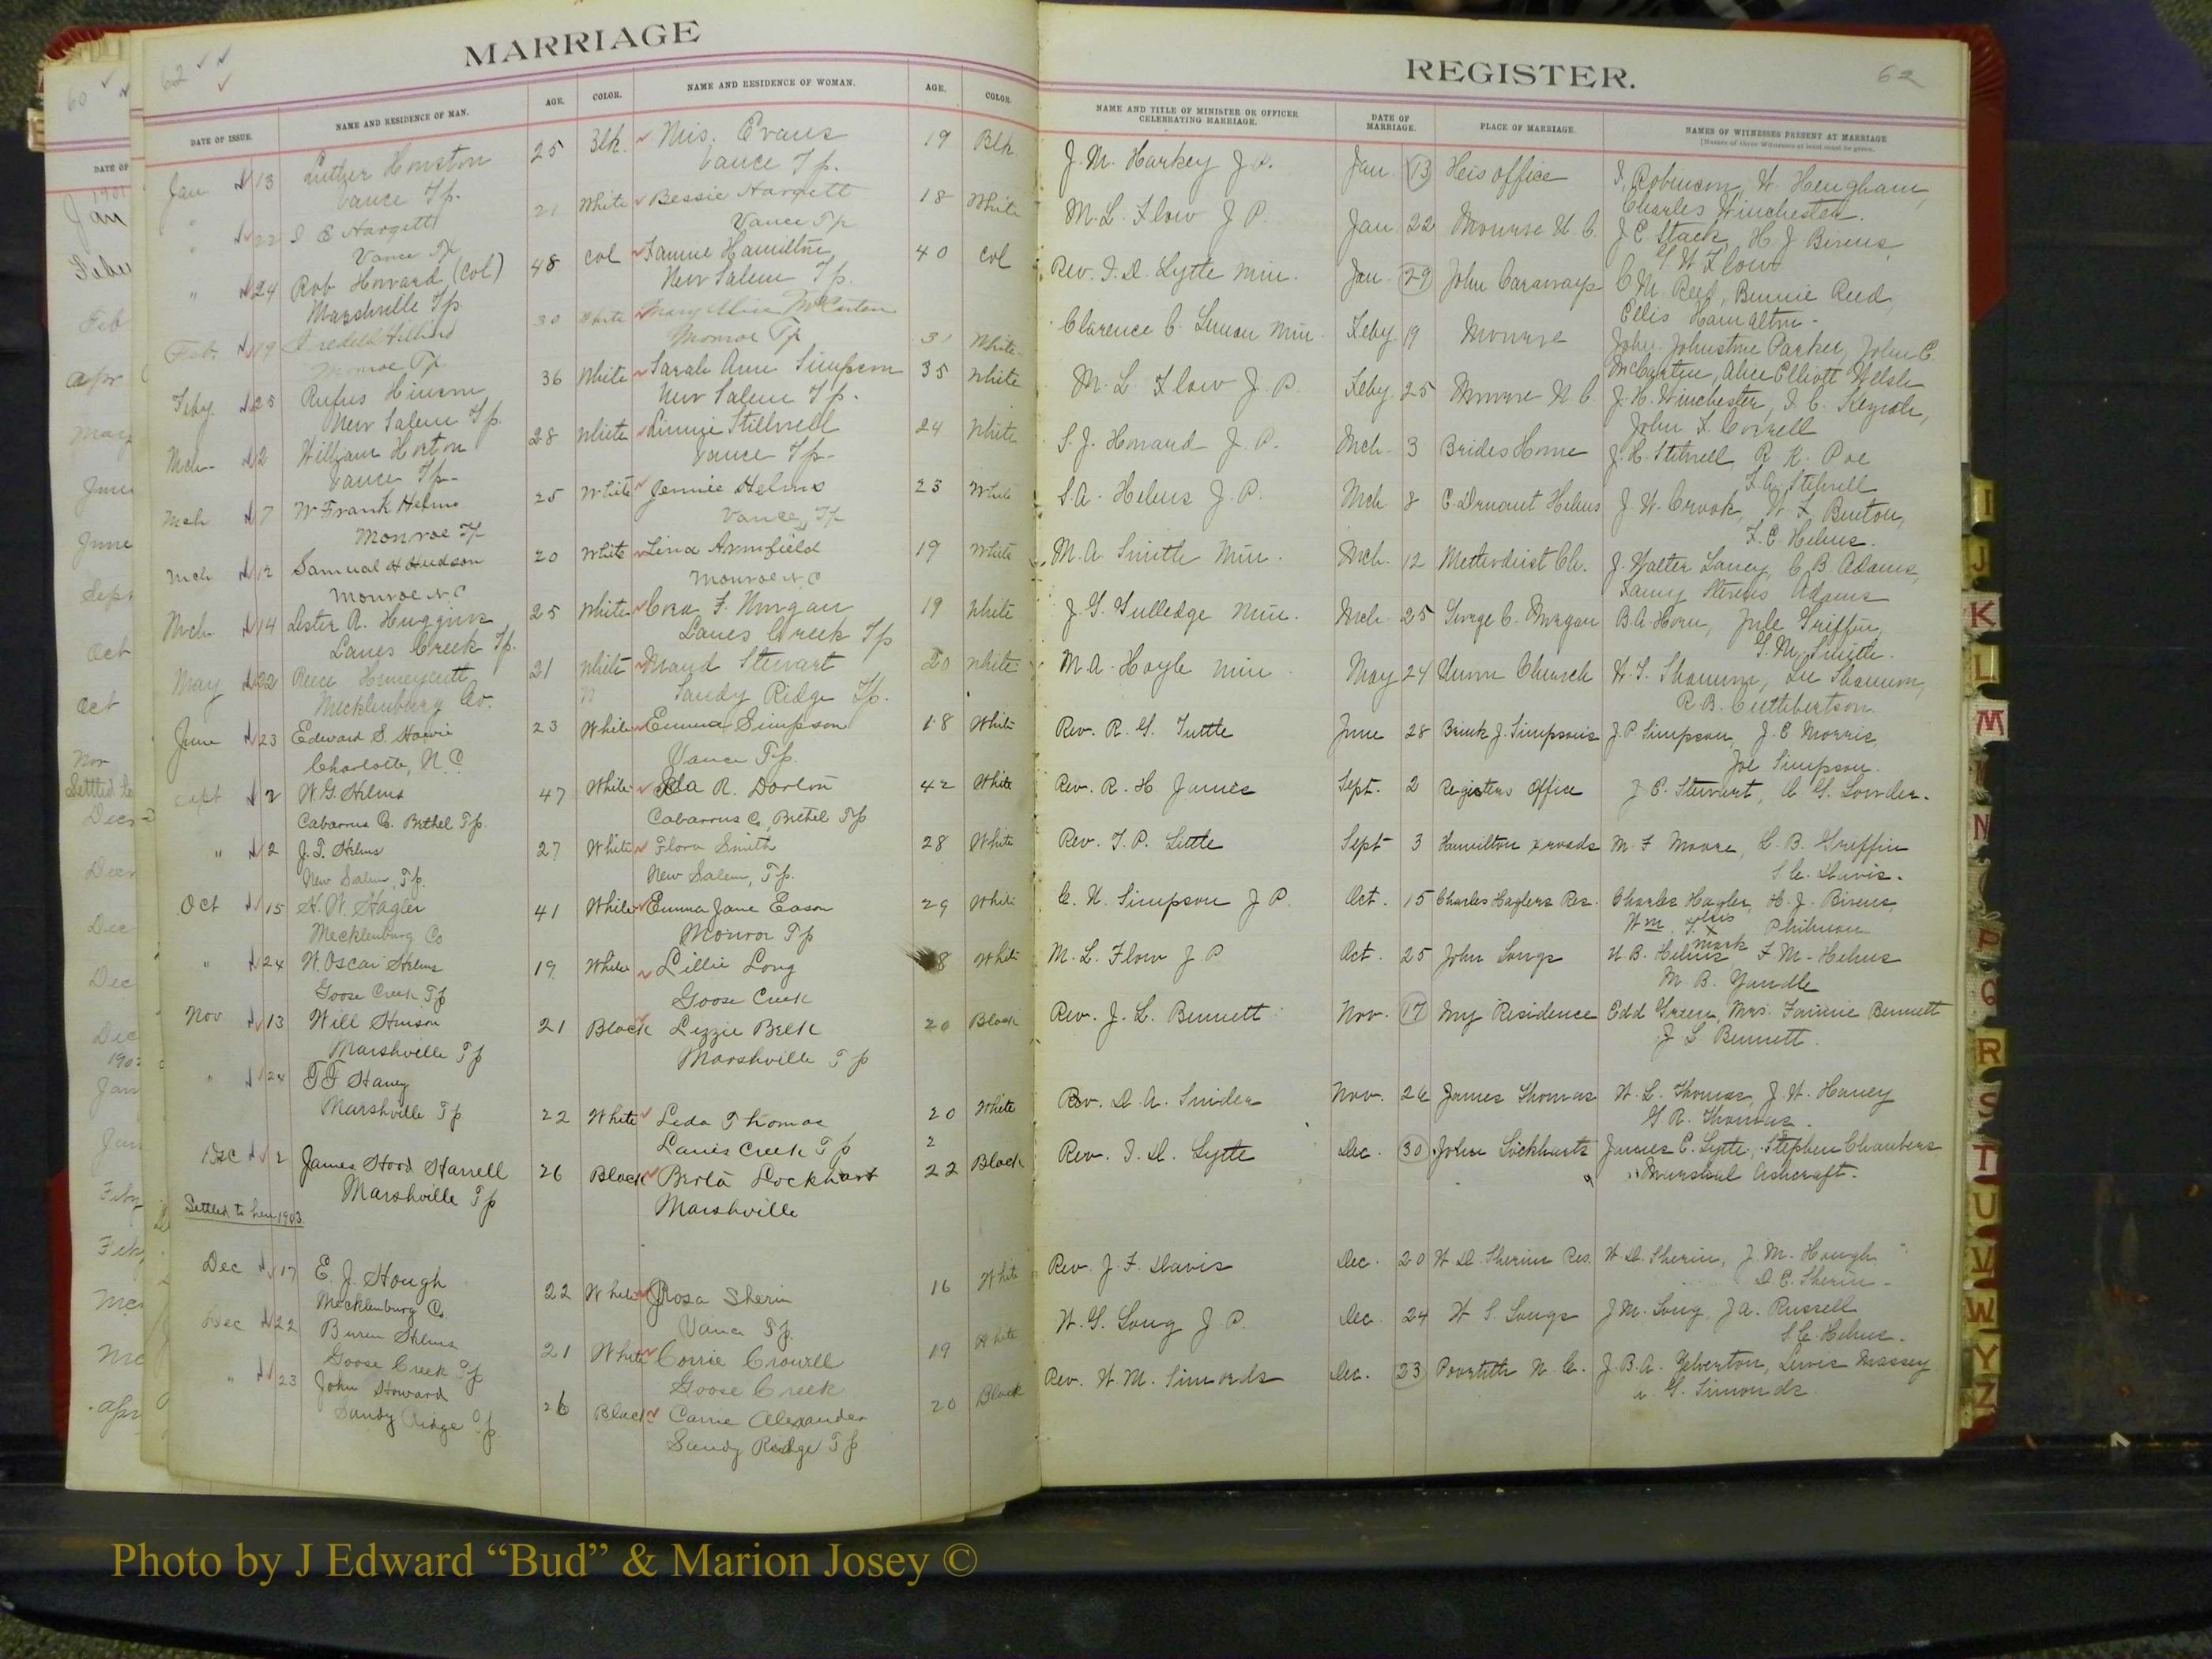 MARRIAGE
REGISTER.
62
62
60
DATE OF ISSUE.
NAME AND RESIDENCE OF MAN.
AGE.
COLOR.
NAME AND RESIDENCE OF WOMAN.
AGE.
COLOR.
NAME AND TITLE OF MINISTER OR OFFICER
CELEBRATING MARRIAGE.
DATE OF
MARRIAGE.
PLACE OF MARRIAGE.
NAMES OF WITNESSES PRESENT AT MARRIAGE
[Names of three Witnesses at least must be given.
Jan 13 Luther Houston 25 Blk. Mis. Evans 19 Blk J. M. Harkey J.P. Jan. 13 His office J. Robinson, W. Heugham,
Vance Tp. Vance Tp. Charles Winchester.
" 22 J E Hargett 21 White Bessie Hargett 18 White M. L. Flow J P. Jan 22 Monroe N. C. J C Stack, H. J. Bivens,
Vance Tp Vance Tp G W Flow
" 24 Rob Howard (Col) 48 Col Fannie Hamilton 40 Col Rev. I. D. Lytle Min. Jan. 29 John Caraways C M Reed, Bennie Reed,
Marshville Tp. New Salem Tp. Ellis Hamilton
Feb. 19 Iredell Hilliard 30 White Mary Alice McCarten 31 White Clarence C. Min. Feby. 19 Monroe John Johnstone Parker, John C.
Monroe Tp Monroe Tp McCarten, Alice Elliott Welsh
Feby. 25 Rufus Hinson 36 White Sarah Ann Simpson 35 White M. L. Flow J P. Feby. 25 Monroe N C. J. H. Winchester,
New Salem Tp. New Salem Tp. John F. Correll
Mch. 2 William Horton 28 White Linnie Stillwell 24 White S. J. Howard J. P. Mch. 3 Brides Home J. H. Stilwell R. K. Poe
Vance Tp. Vance Tp. Stilwell
Mch 7 W Frank Helms 25 White Jennie Helms 23 White S. A. Helms J. P. Mch 8 E. Helms J. W. Crook, Benton,
Monroe Tp Vance Tp F. C Helms.
Mch 12 Samual H Hudson 20 White Lina Armfield 19 White M. A Smith Min. Mch. 12 Methodist Ch. J. Walter Laney, C B Adams,
Monroe N. C Monroe N. C Fanny Stevens Adams
Mch 14 Lester A. Huggins 25 White Cora F. Morgan 19 White J. G. Gulledge Min. Mch. 25 George C. Morgan B. A. Horn, Jule Griffin,
Lanes Creek Tp. Lanes Creek Tp G. M. Smith.
May 22 Honeycutt 21 White Maud Stewart 20 White M. A. Hoyle Min May 24 Church W. T. Shannon, Lee Shannon,
Mecklenburg Co. Sandy Ridge Tp. R. B. Cuthbertson
June 23 Edward S. Howie 23 White Emma Simpson 18 White Rev. R. G. Tuttle June 28 Brink J. Simpsons J. P Simpson, J. E Morris
Charlotte, N. C. Vance Tp. Joe Simpson.
Sept 2 W. G. Helms 47 White R. Dorton 42 White Rev. R. H. James Sept. 2 Registers Office J E. Stewart, C. G. Lowder.
Cabarrus Co. Bethel Tp. Cabarrus Co, Bethel Tp
" 2 J. T. Helms 27 White Flora Smith 28 White Rev. T. P. Little Sept 3 Hamilton xroads M. F Moore, L. B. Griffin
New Salem, Tp. New Salem, Tp. S. C. Davis.
Oct 15 H. W. Hagler 41 White Emma Jane Eason 29 White C. N. Simpson J P. Oct. 15 Charles Haglers Res. Charles Hagler, H. J. Bivens,
Mecklenburg Co Monroe Tp Wm. T. his x mark Philmon
" 24 W. Oscar Helms 19 White Lillie Long 18 White M. L. Flow J P Oct. 25 John Longs H. B. Helms F M. Helms
Goose Creek Tp Goose Creek M B. Yandle
Nov 13 Will Hinson 21 Black Lizzie Belk 20 Black Rev. J. L. Bennett Nov. 17 My Residence Edd Green, Mrs. Fannie Bennett
Marshville Tp Marshville Tp J L Bennett.
" 24 T F Haney
Marshville Tp 22 White Leda Thomas 20 White Rev. D. A. Snider Nov. 26 James Thomas W. L. Thomas, J. W. Haney
Lanes Creek Tp 2 G R. Thomas.
Dec 2 James Hood Harrell 26 Black Berta Lockhart 22 Black Rev. I. D. Lytle Dec. 30 John Lockharts James C. Lytle, Stephen Chambers
Marshville Tp Marshville Marshal Ashcraft.
Settled to here 1903.
Dec 17 E. J. Hough 22 White Rosa Sherin 16 White Rev. J. F. Davis Dec. 20 W D. Sherins Res. W. D. Sherin, J M. Hough
Mecklenburg Co. Vance Tp. D. C. Sherin
Dec 22 Buren Helms 21 White Corrie Crowell 19 White W. G. Long J. P. Dec. 24 W. S. Longs J M. Long, J A. Russell
Goose Creek Tp Goose Creek S. C. Helms.
" 23 John Howard 26 Black Carrie Alexander 20 Black Rev. W. M. Simonds Dec. 23 N. C. J. B. A. Yelverton, Lewis Massey
Sandy Ridge Tp. Sandy Ridge Tp G. Simonds.
I
J
K
L
M
N
P
Q
R
S
T
U
V
W
Y
Z
Photo by J Edward “Bud” & Marion Josey ©